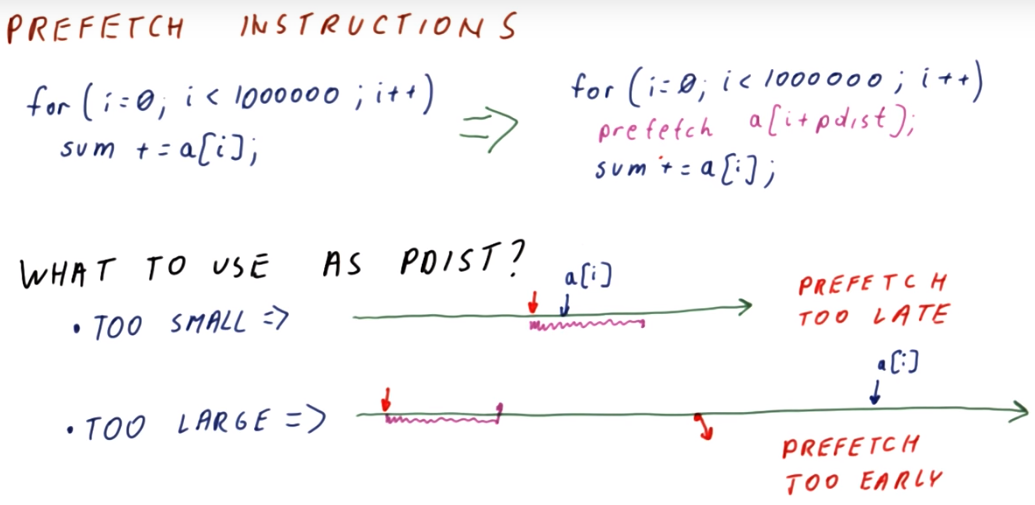 PREFETCH INSTRUCTIONS
for (i=0; i < 1000000 ; i++)
sum += a[i];
=>
for (i=0; i < 1000000 ; i++)
prefetch a[i+pdist];
sum += a[i];
WHAT TO USE AS PDIST?
• TOO SMALL =>
a[i]
PREFETCH
TOO LATE
• TOO LARGE =>
a[i]
PREFETCH
TOO EARLY